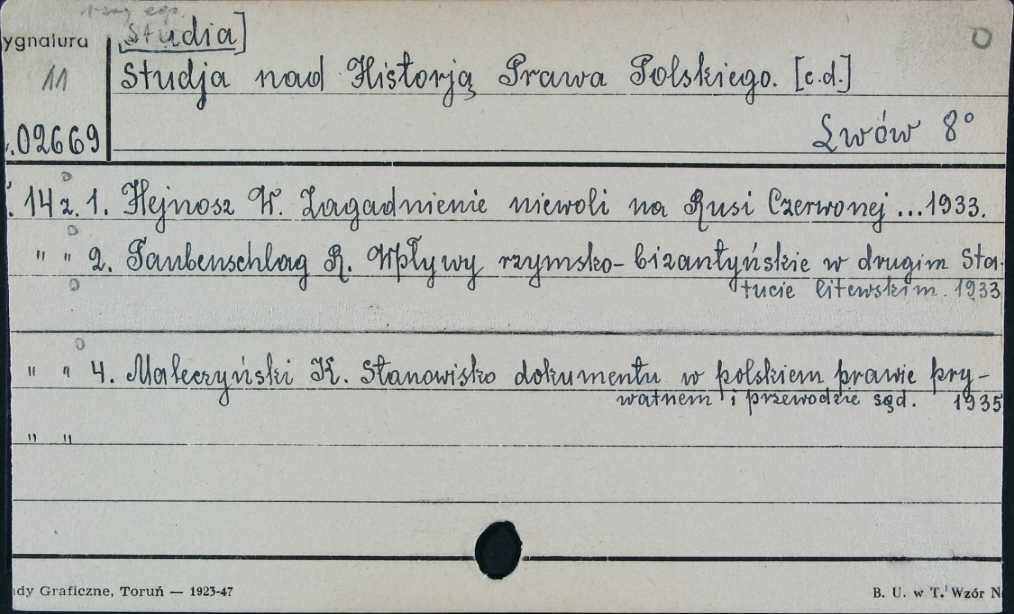 egz.
ygnatura [Studia]
11 Studja nad Historją Prawa Polskiego. [c.d.]
.02669 Lwów 8°
. 14 z. 1. Hejnosz W. Zagadnienie niewoli na Rusi Czerwonej ... 1933.
" " 2. Taubenschlag R. Wpływy rzymsko-bizantyńskie w drugim Sta-
tucie litewskim. 1933
" " 4. Maleczyński K. Stanowisko dokumentu w polskiem prawie pry-
watnem i przewodzie sąd. 1935
" "
dy Graficzne, Toruń — 1923-47 B. U. w T. Wzór N